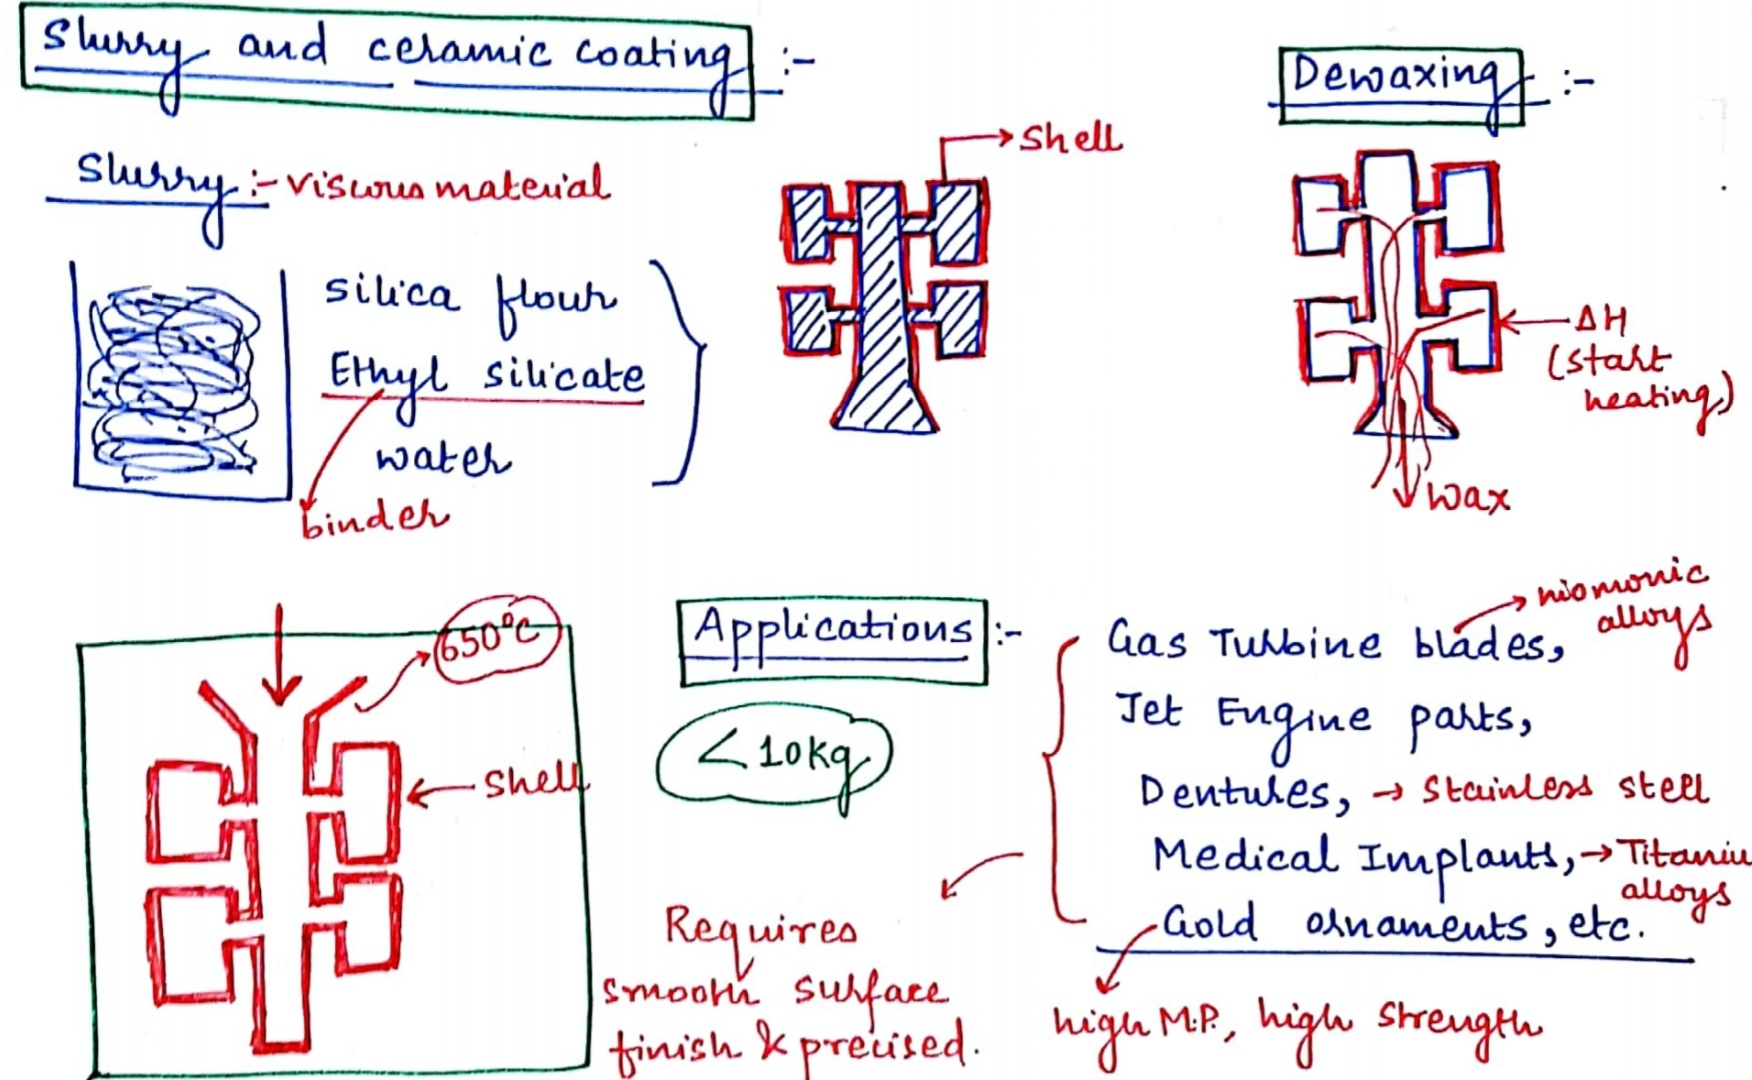 Slurry and ceramic coating :-
Slurry :- viscous material
silica flour
Ethyl silicate
water
binder
Shell
Dewaxing :-
ΔH
(start
heating)
Wax
650°C
Shell
Applications :-
<10kg
Gas Turbine blades,
niomonic
alloys
Jet Engine parts,
Dentures, → Stainless stell
Medical Implants, → Titaniu
alloys
Gold ornaments, etc.
high M.P., high strength
Requires
smooth surface
finish & precised.